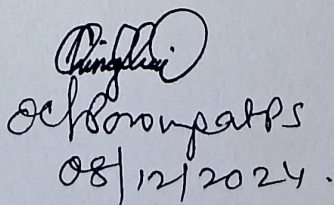 OC/Porompat PS
08/12/2024.